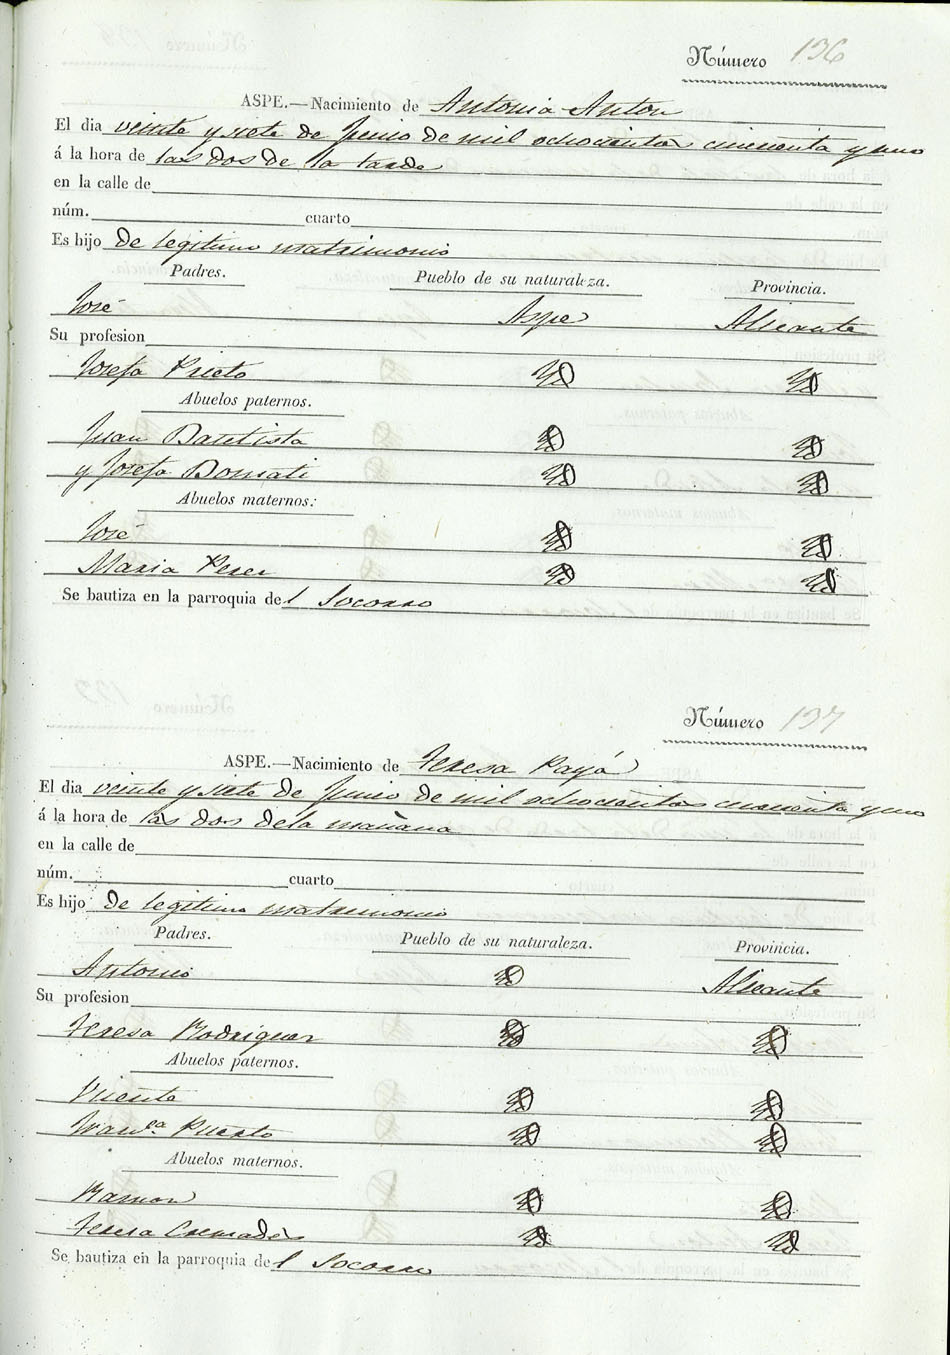 Número 136
ASPE.—Nacimiento de Antonia Anton
El dia veinte y siete de Junio de mil ochocientos cincuenta y uno
á la hora de las dos de la tarde
en la calle de
núm. cuarto
Es hijo de legitimo matrimonio
Padres. Pueblo de su naturaleza. Provincia.
José Aspe Alicante
Su profesion
Josefa Prieto Id Id
Abuelos paternos.
Juan Bautista Id Id
y Josefa Bonmati Id Id
Abuelos maternos:
José Id Id
Maria Perez Id Id
Se bautiza en la parroquia del Socorro
Número 137
ASPE.—Nacimiento de Teresa Payá
El dia veinte y siete de Junio de mil ochocientos cincuenta y uno
á la hora de las dos de la mañana
en la calle de
núm. cuarto
Es hijo de legitimo matrimonio
Padres. Pueblo de su naturaleza. Provincia.
Antonio Id Alicante
Su profesion
Teresa Rodriguez Id Id
Abuelos paternos.
Vicente Id Id
Franca Puerto Id Id
Abuelos maternos.
Ramon Id Id
Teresa Cremades Id Id
Se bautiza en la parroquia del Socorro